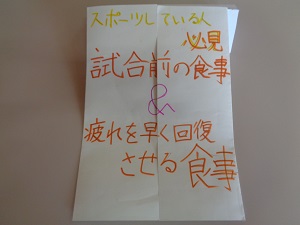 スポーツしている人
必見
試合前の食事
&
疲れを早く回復
させる食事